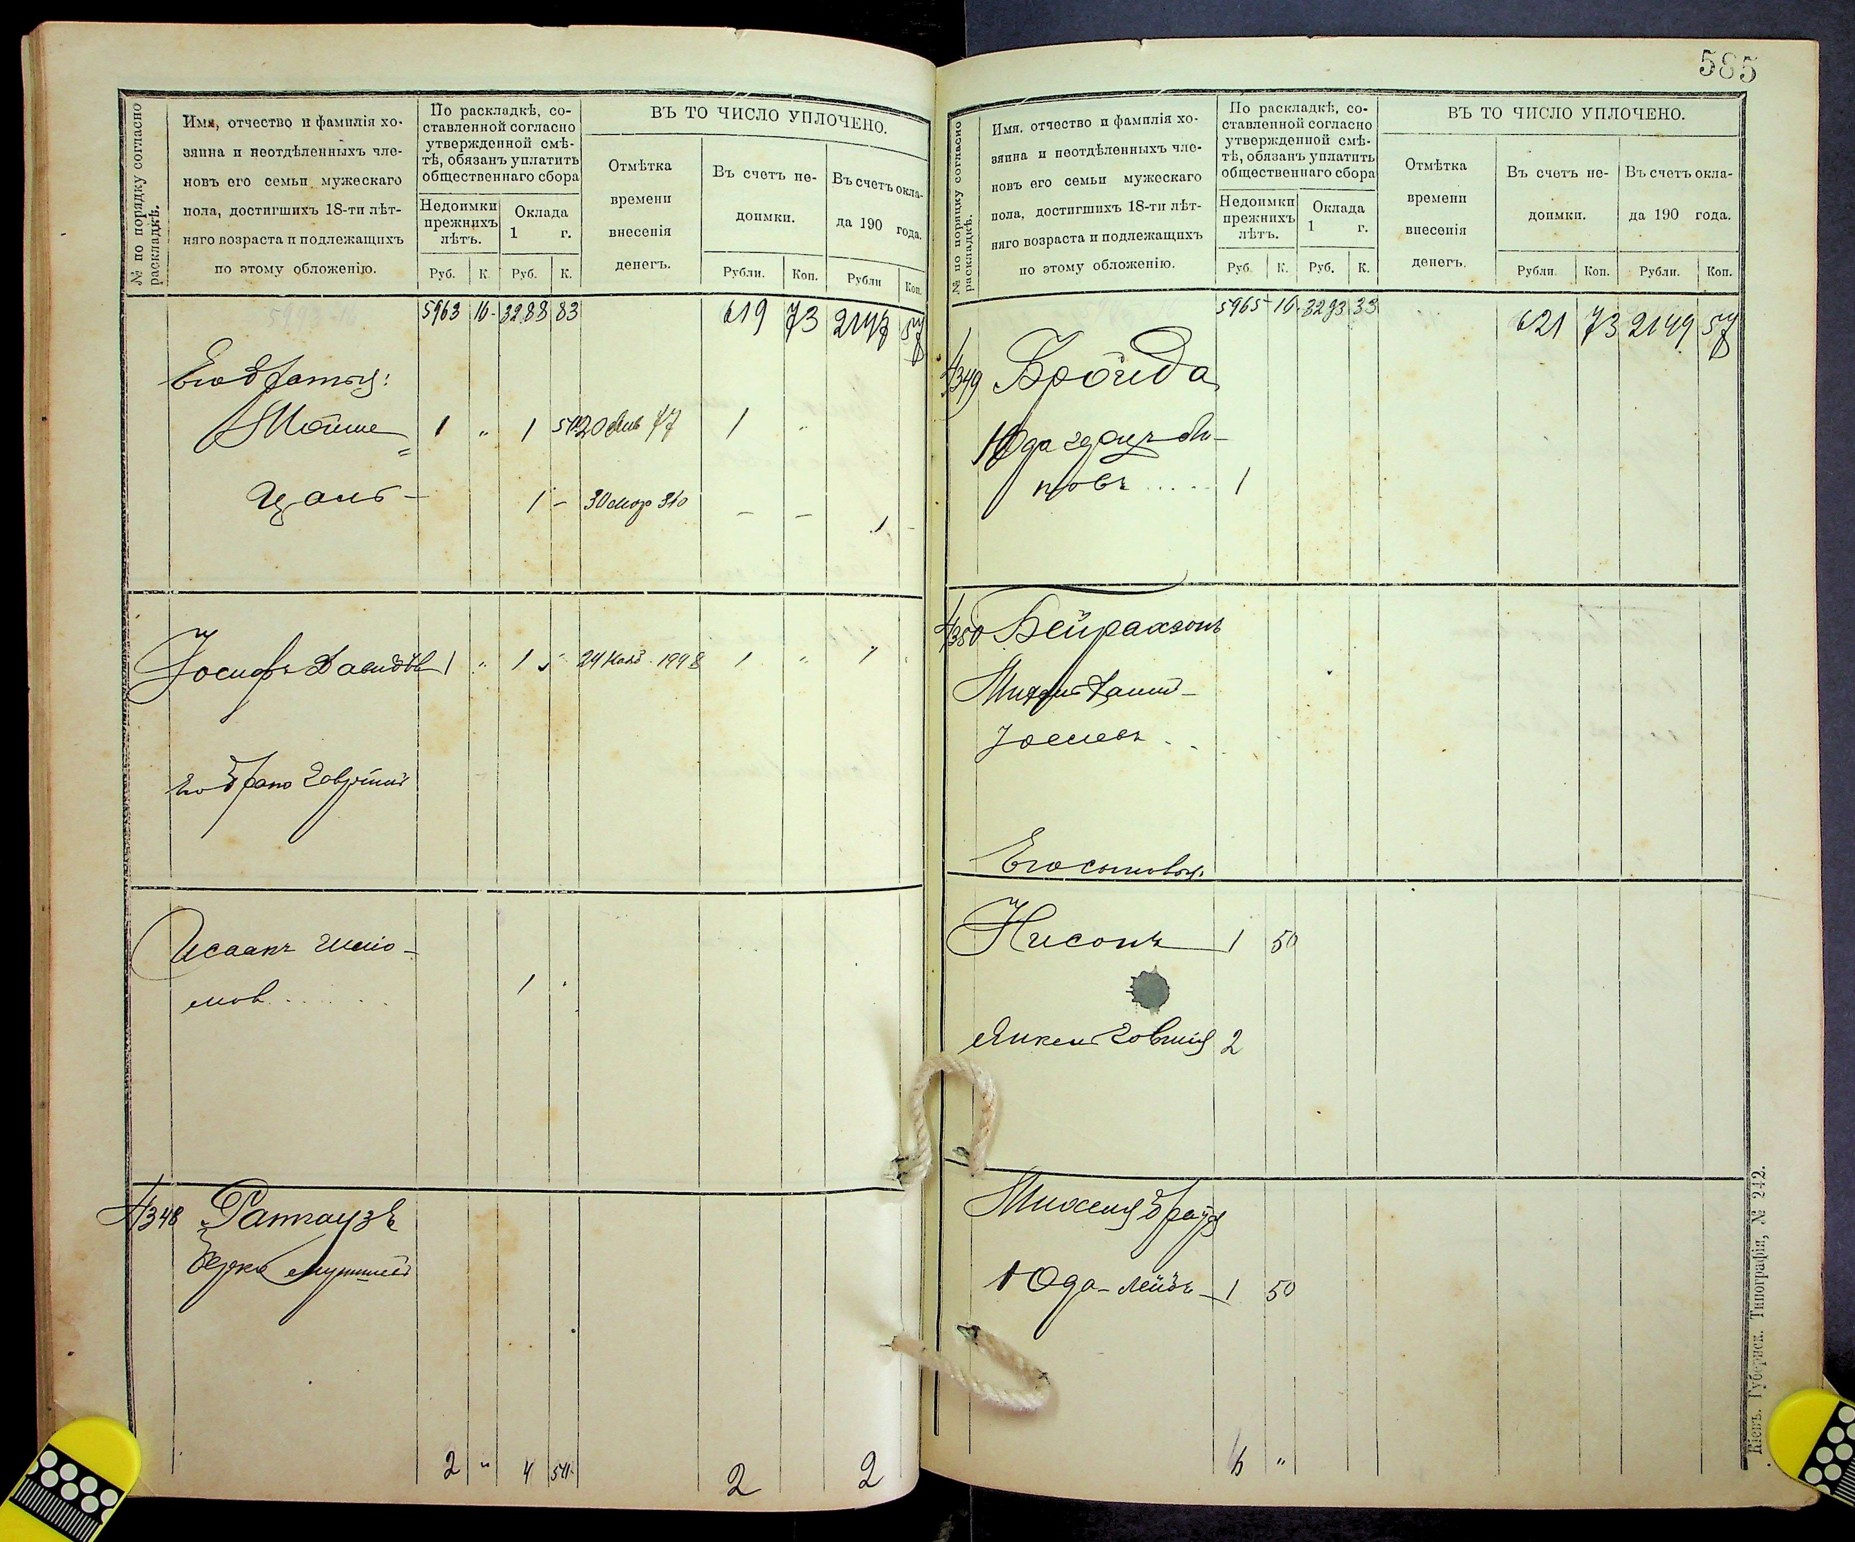 № по порядку согласно раскладкѣ.
Имя, отчество и фамилія хо-
зяина и неотдѣленныхъ чле-
новъ его семьи мужескаго
пола, достигшихъ 18-ти лѣт-
няго возраста и подлежащихъ
по этому обложенію.
По раскладкѣ, со-
ставленной согласно
утвержденной смѣ-
тѣ, обязанъ уплатить
общественнаго сбора
Недоимки
прежнихъ
лѣтъ.
Оклада
1 г.
Руб. К. Руб. К.
ВЪ ТО ЧИСЛО УПЛОЧЕНО.
Отмѣтка
времени
внесенія
денегъ.
Въ счетъ не-
доимки.
Въ счетъ окла-
да 190 года.
Рубли. Коп. Рубли Коп.
5963 16 3288 83 619 73 2147 57
Его братья:
Мойше 1 " 1 1
1 - 30 - - 1 -
Іосифъ Давидовъ 1 " 1 24 1 " 1
Исаакъ Шлio-
мов 1
348 Ратгаузъ
Берко
2 " 4 2 2
585
№ по порядку согласно раскладкѣ.
Имя, отчество и фамилія хо-
зяина и неотдѣленныхъ чле-
новъ его семьи мужескаго
пола, достигшихъ 18-ти лѣт-
няго возраста и подлежащихъ
по этому обложенію.
По раскладкѣ, со-
ставленной согласно
утвержденной смѣ-
тѣ, обязанъ уплатить
общественнаго сбора
Недоимки
прежнихъ
лѣтъ.
Оклада
1 г.
Руб. К. Руб. К.
ВЪ ТО ЧИСЛО УПЛОЧЕНО.
Отмѣтка
времени
внесенія
денегъ.
Въ счетъ не-
доимки.
Въ счетъ окла-
да 190 года.
Рубли. Коп. Рубли. Коп.
5965 16 3293 33 621 73 2149 57
349 Бройда
1
350 Бейрахзонъ
Іоселевъ
Его сыновья:
Нисонъ 1 50
Янкель 2
Юда-Лейбъ 1 50
6 "
Кіевъ. Губернск. Типографія, № 242.